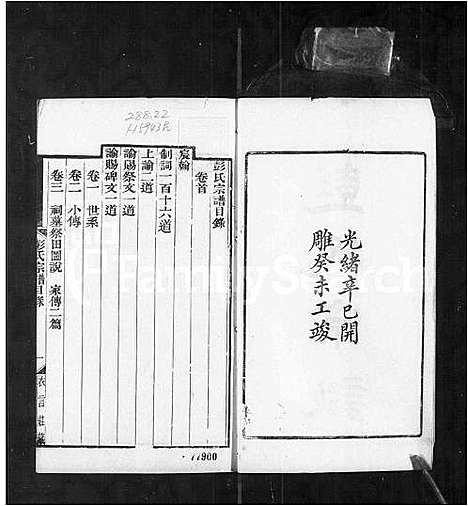 光緒辛巳開
雕癸未工竣
彭氏宗譜目錄
卷首
宸翰
制詞一百十六道
上諭二道
諭賜祭文一道
諭賜碑文一道
卷一 世系
卷二 小傳
卷三 祠墓祭田圖說 家傳二篇
彭氏宗譜目錄
一
衣言莊藏
288.22
FamilySearch